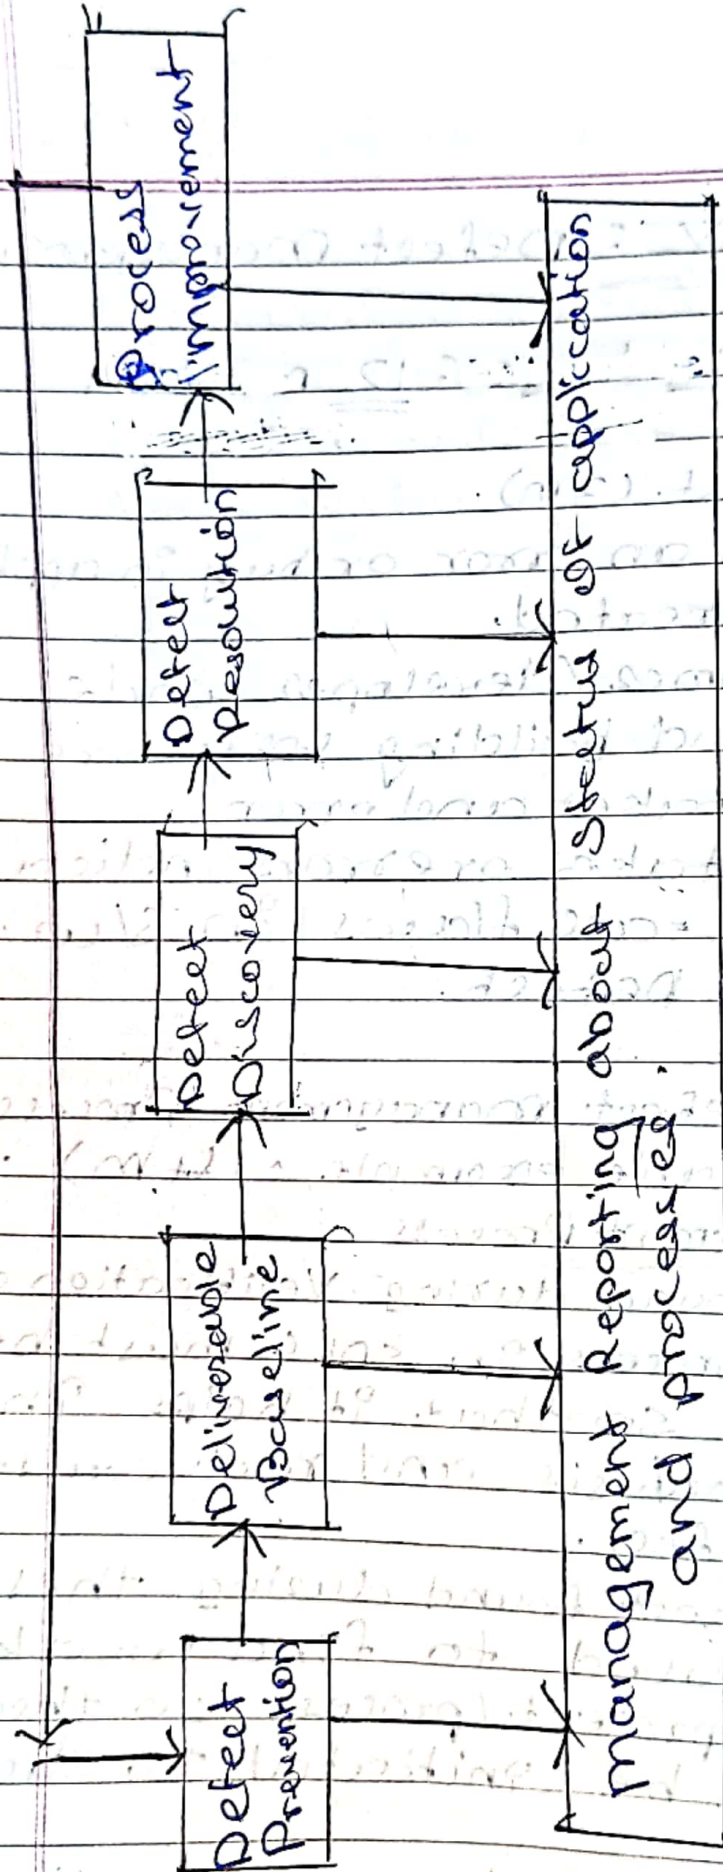 Defect
Prevention
Deliverable
Baseline
Defect
Discovery
Defect
Resolution
Process
Improvement
Management Reporting about Status Of application
and processes.